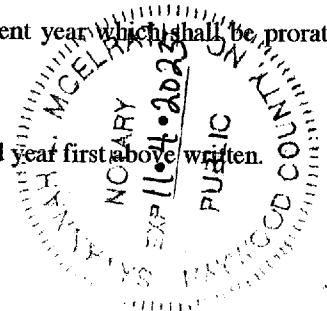 ent year which shall be prorat
d year first above written.
MCELRATH
NOTARY
PUBLIC
EXP 11•4•2023
HAYWOOD COUNTY